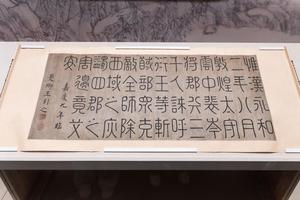 惟漢永和
二年八月
敦煌太守
雲中裴岑
將郡兵三
千人誅呼
衍王等斬
馘部眾克
敵全師除
西域之
蠲四郡之
害邊竟艾
安
嘉慶九年臨
王引之